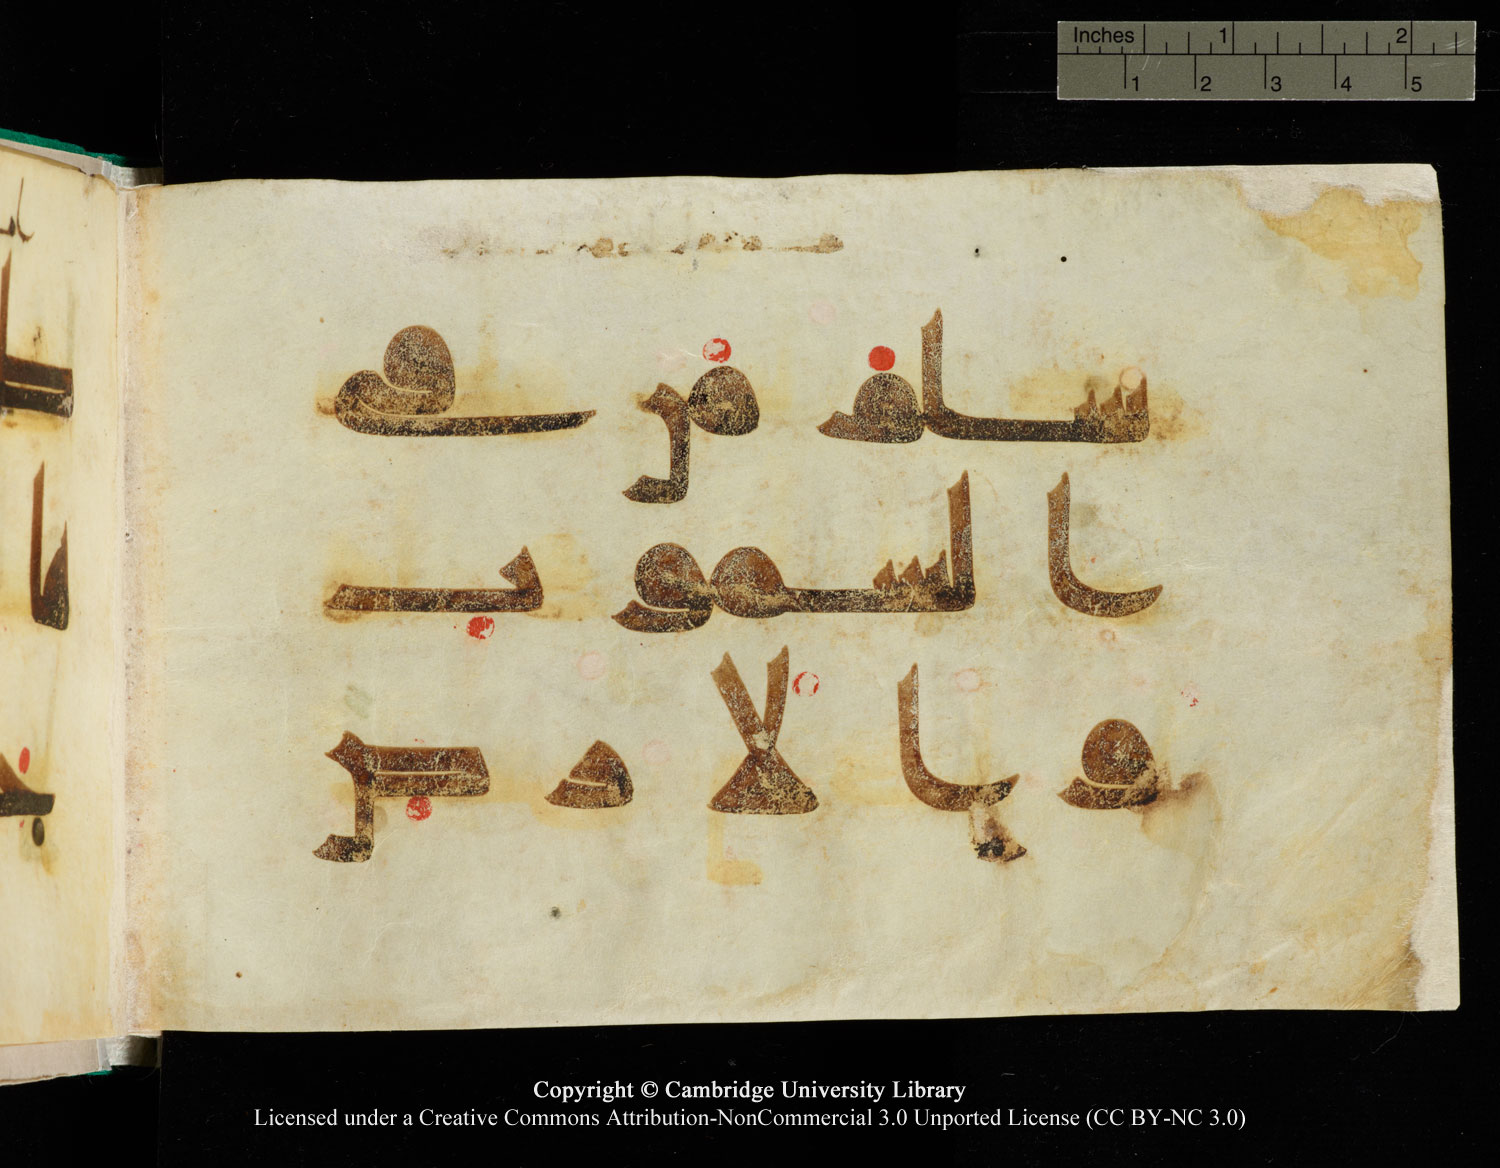 Inches 1 2
1 2 3 4 5
يسله من فى
ا لسمو ت
و ا لا ر ض
Copyright © Cambridge University Library
Licensed under a Creative Commons Attribution-NonCommercial 3.0 Unported License (CC BY-NC 3.0)